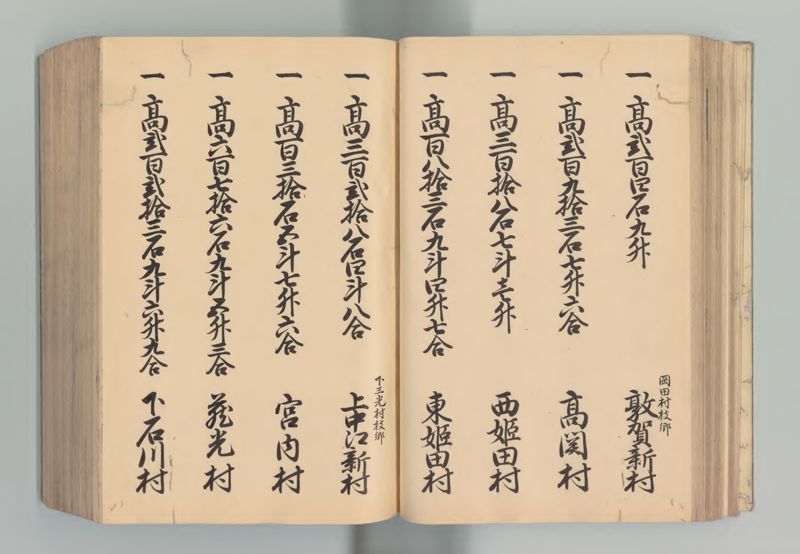 一 高弐百四石九升
岡田村枝郷
敦賀新村
一 高弐百九拾三石七升六合
高関村
一 高三百拾八石七斗壱升
西姫田村
一 高百八拾三石九斗四升七合
東姫田村
一 高三百弐拾八石四斗八合
下三光村枝郷
上中江新村
一 高百三拾石五斗七升六合
宮内村
一 高六百七拾六石九斗五升三合
蔵光村
一 高弐百弐拾三石九斗六升九合
下石川村